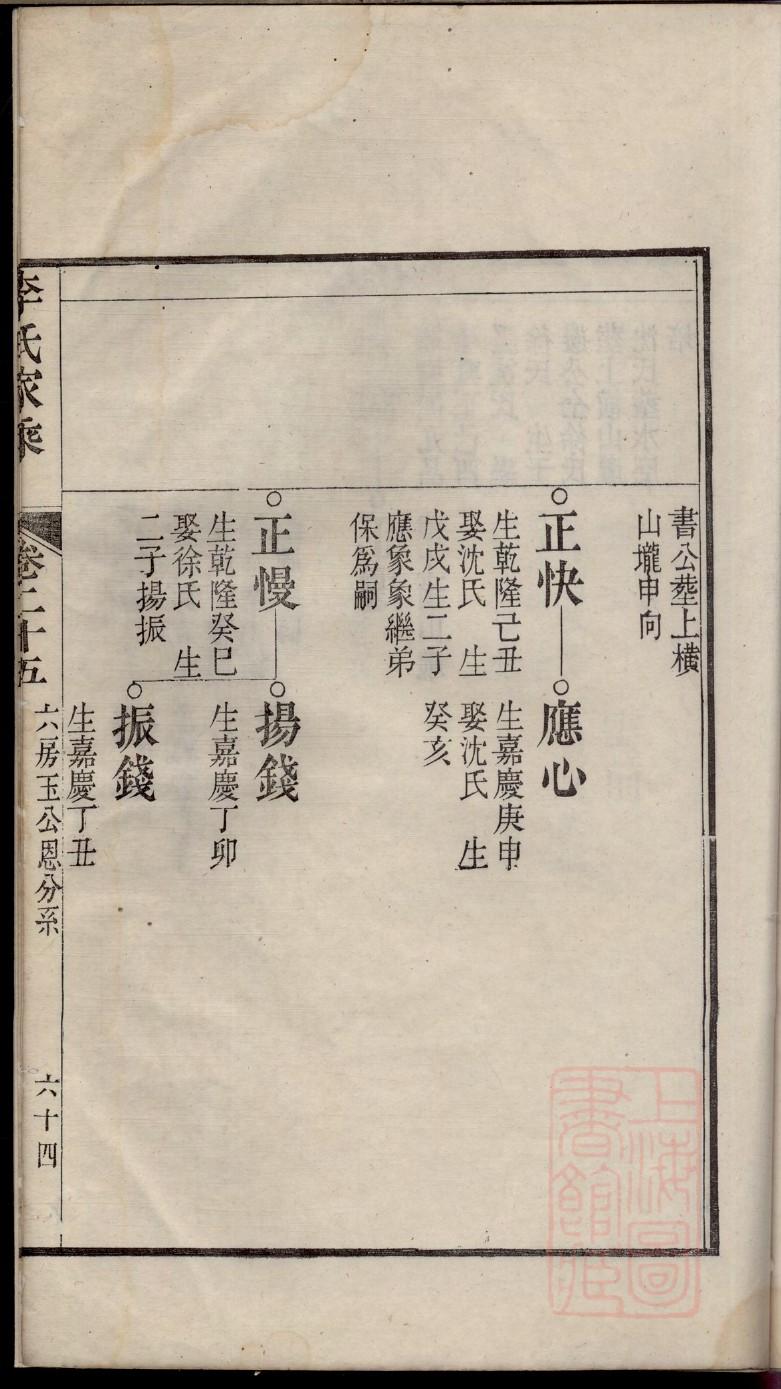 書公塟上橫
山壠申向
正快
生乾隆己丑
娶沈氏 生
戊戌生二子
應象象繼弟
保爲嗣
應心
生嘉慶庚申
娶沈氏 生
癸亥
正慢
生乾隆癸巳
娶徐氏 生
二子揚振
揚錢
生嘉慶丁卯
振錢
生嘉慶丁丑
李氏家乘
卷二十五
六房玉公恩分系
六十四
上海圖
書館藏